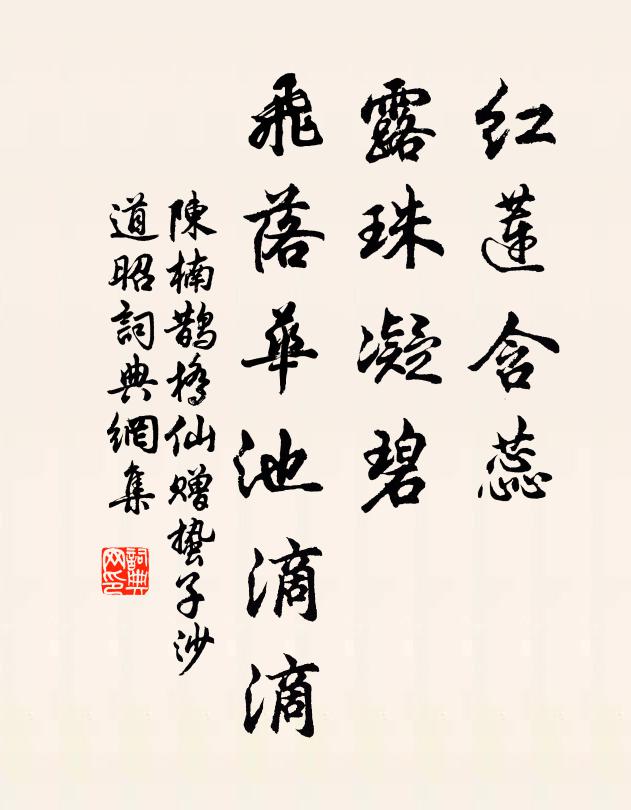 红蓮含蕊
露珠凝碧
飛落華池滴滴
陳楠鵲橋仙赠蛰子沙
道昭詞典網集
詞典网印